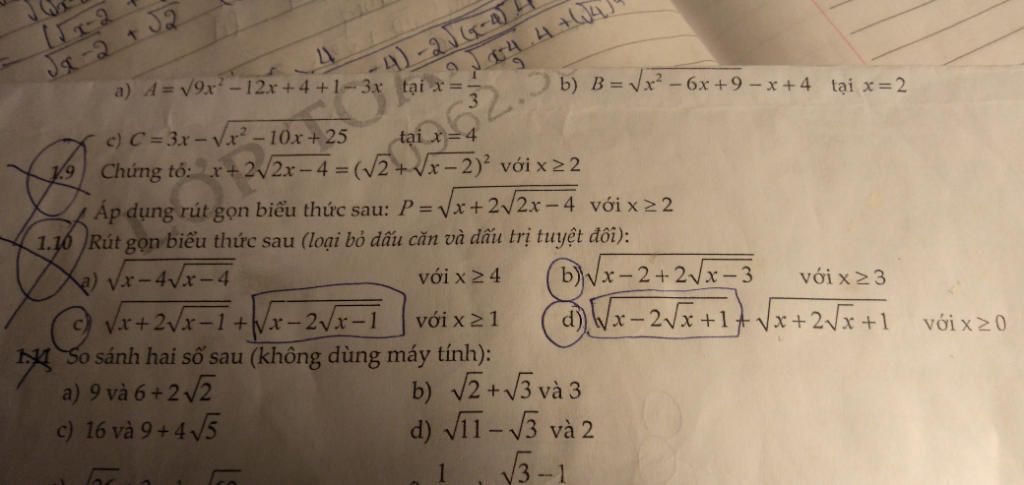 √x-2 + √2
a) A = √(9x² − 12x + 4) + 1 − 3x tại x = 1/3 b) B = √(x² − 6x + 9) − x + 4 tại x = 2
c) C = 3x − √(x² − 10x + 25) tại x = 4
1.9 Chứng tỏ: x + 2√(2x − 4) = (√2 + √(x − 2))² với x ≥ 2
Áp dụng rút gọn biểu thức sau: P = √(x + 2√(2x − 4)) với x ≥ 2
1.10 Rút gọn biểu thức sau (loại bỏ dấu căn và dấu trị tuyệt đối):
a) √(x − 4√(x − 4)) với x ≥ 4 b) √(x − 2 + 2√(x − 3)) với x ≥ 3
c) √(x + 2√(x − 1)) + √(x − 2√(x − 1)) với x ≥ 1 d) √(x − 2√x + 1) + √(x + 2√x + 1) với x ≥ 0
1.11 So sánh hai số sau (không dùng máy tính):
a) 9 và 6 + 2√2 b) √2 + √3 và 3
c) 16 và 9 + 4√5 d) √11 − √3 và 2
1 √3 − 1
LỚP TOÁN
0962.3